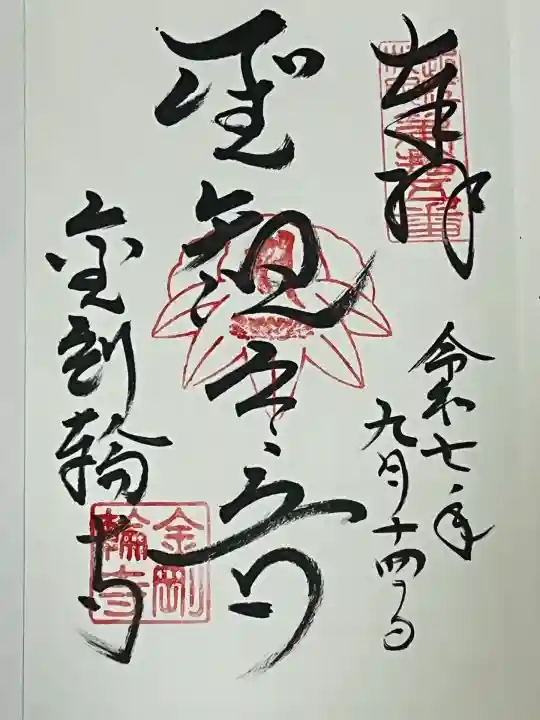 奉拝
令和七年
九月十四日
聖観世音
金剛輪寺
金剛
輪寺